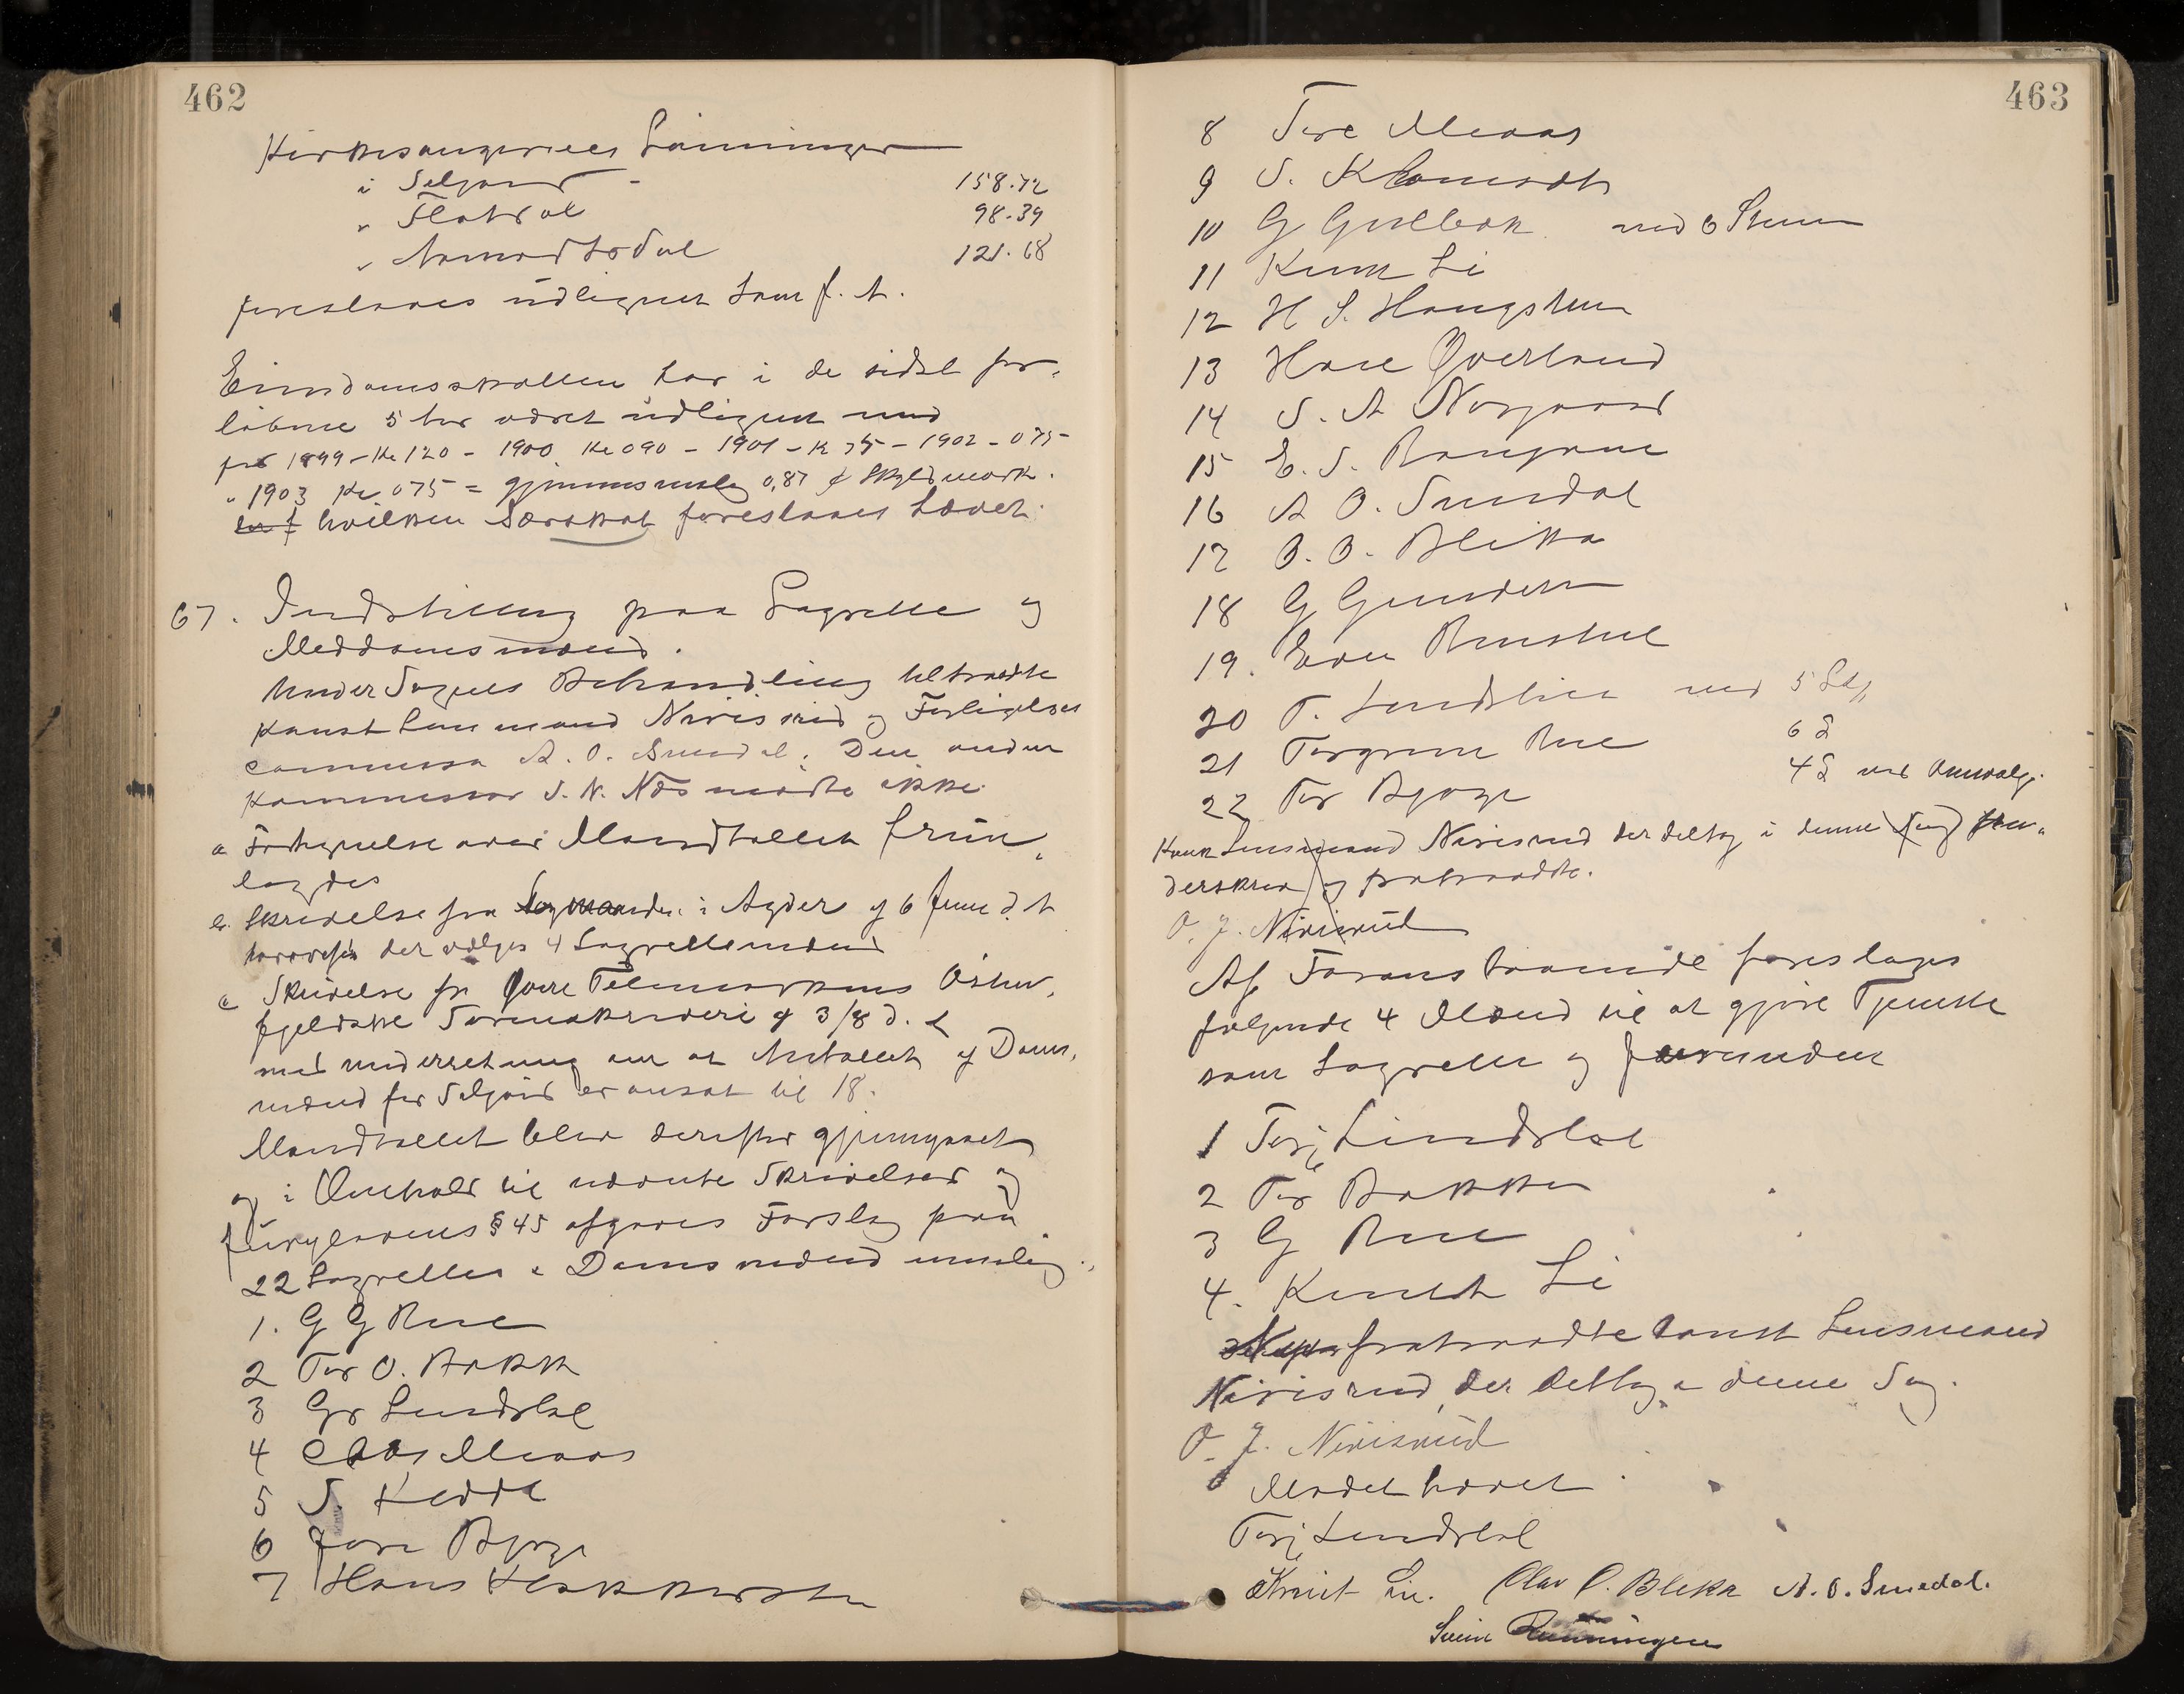 462
Kirkesangernes Lønninger
i Seljord - 158.72
" Flatdal 98.39
" Aamodtsdal 121.68
foreslaaes udlignet som f. A.
Eiendomsskatten har i de sidst for-
løbne 5 Aar været udlignet med
for 1899 - Kr 120 - 1900 Kr 090 - 1901 - K 75 - 1902 - 075
" 1903 Kr 075 = gjennemsnitlig 0,87 Skyldmark.
hvilken Særskat foreslaaes hævet.
67. Indstilling paa Lagrette og
Meddomsmænd.
Under Sagens Behandling tiltraadte
Konst Lensmand Nirisrud og Forligelses
commissær A. O. Smedal. Den anden
Kommissær S. N. Næs mødte ikke.
a Fortegnelse over Mandtallet frem-
lagdes
b. Skrivelse fra Lagmanden i Agder af 6 Juni d. A
hvorefter der vælges 4 Lagrettemænd
c Skrivelse fra Øvre Telemarkens Østen-
fjeldske Sorenskriveri af 3/8 d. A
med underretning om at Antallet af Doms-
mænd for Seljord er ansat til 18.
Mandtallet blev derefter gjennemgaaet
og i Henhold til nævnte Skrivelser og
Jurylovens § 45 afgaves Forslag paa
22 Lagrette & Domsmænd nemlig:
1. G G Rue
2 Tor O. Bakk
3 Gr Lindsal
4 Mæaas
5 S Kedde
6 Jore Bjørge
7 Hans Klokkerstu
463
8 Tore Mæaas
9 S. Klomodt
10 G Gulbek med 6 Stemm
11 Knut Li
12 H S. Haugstun
13 Hans Øverland
14 S. A Norgaard
15 E. S. Rønjom
16 A O. Smedal
17 O. O. Blika
18 G Gundersen
19. Even
20 T. med 5 St,
21 Torgrim Rue 6 S
22 Tor Bjørge 4 S ved Omvalg.
Konst Lensmand Nirisrud der deltog i denne Sag un-
derskrev og fratraadte.
O. J. Nirisrud
Af Foranstaaende foreslages
følgende 4 Mænd til at gjøre Tjeneste
som Lagrette
1 Terj Lindsal
2 Tor Bakken
3 G Rue
4. Knut Li
fratraadte konst Lensmand
Nirisrud, der deltog i denne Sag.
O. J. Nirisrud
Mødet hævet
Terj Lindsal
Knut Li. Olav O. Blika A. O. Smedal.
Svein Rønningen